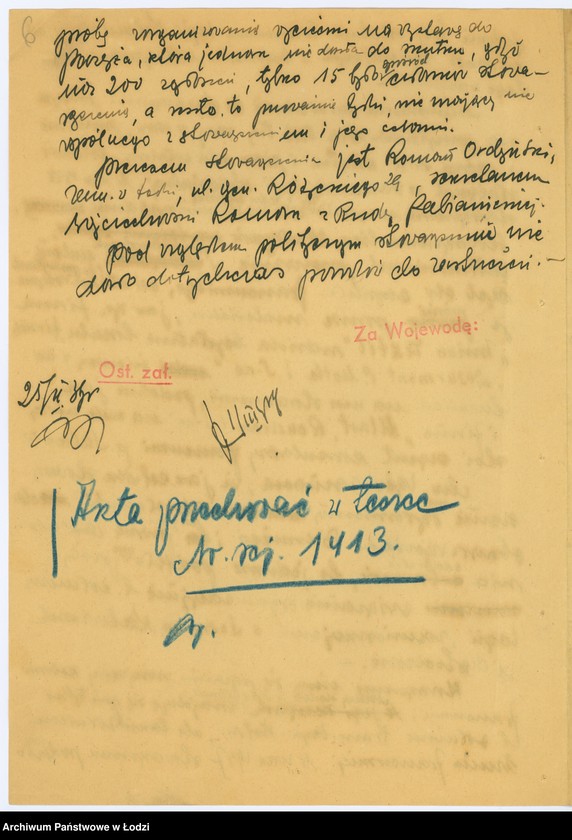 6
próbę zorganizowania wycieczki na wystawę do
Paryża, która jednak nie doszła do skutku, gdyż
na 200 zgłoszeń, tylko 15 było spośród członków stowa-
rzyszenia, a reszta to przeważnie Żydzi, nie mający nic
wspólnego z stowarzyszeniem i jego celami.
Prezesem stowarzyszenia jest Roman Ordzyński,
zam. w Łodzi, ul. gen. Różyckiego 29, sekretarzem
Wojciechowski Roman z Rudy Pabianickiej.
Pod względem politycznym stowarzyszenie nie
dało dotychczas powodu do zastrzeżeń. —
Za Wojewodę:
Ost. zał.
25/II 38 r
Akta przechować w teczce
Nr. rej. 1413.
Archiwum Państwowe w Łodzi